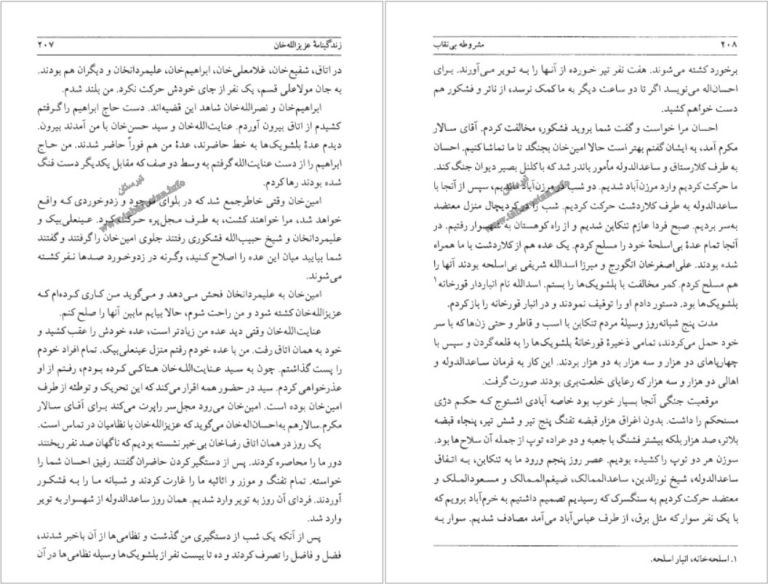 زندگینامهٔ عزیزالله‌خان
۲۰۷
در اتاق، شفیع‌خان، غلامعلی‌خان، ابراهیم‌خان، علیمردانخان و دیگران هم بودند.
به جان مولاعلی قسم، یک نفر از جای خودش حرکت نکرد. من بلند شدم.
ابراهیم‌خان و نصرالله‌خان شاهد این قضیه‌اند. دست حاج ابراهیم را گرفتم
کشیدم از اتاق بیرون آوردم. عنایت‌الله‌خان و سید حسن‌خان با من آمدند بیرون.
دیدم عدهٔ بلشویک‌ها به خط حاضرند، عدهٔ من هم فوراً حاضر شدند. من حاج
ابراهیم را از دست عنایت‌الله گرفتم به وسط دو صف که مقابل یکدیگر دست فنگ
شده بودند رها کردم.
امین‌خان وقتی خاطرجمع شد که در بلوای موجود و زدوخوردی که واقع
خواهد شد، مرا خواهند کشت، به طرف مجل‌پره حرکت کرد. عینعلی‌بیک و
علیمردانخان و شیخ حبیب‌الله فشکوری رفتند جلوی امین‌خان را گرفتند و گفتند
شما بیایید میان این عده را اصلاح کنید، وگرنه در زدوخورد صدها نفر کشته
می‌شوند.
امین‌خان به علیمردانخان فحش می‌دهد و می‌گوید من کاری کرده‌ام که
عزیزالله‌خان کشته شود و من راحت شوم، حالا بیایم مابین آنها را صلح کنم.
عنایت‌الله‌خان وقتی دید عده من زیادتر است، عده خودش را عقب کشید و
خود به همان اتاق رفت. من با عده خودم رفتم منزل عینعلی‌بیک. تمام افراد خودم
را پست گذاشتم. چون به سید عنایت‌الله‌خان هتاکی کرده بودم، رفتم از او
عذرخواهی کردم. سید در حضور همه اقرار می‌کند که این تحریک و توطئه از طرف
امین‌خان بوده است. امین‌خان می‌رود مجل‌سر راپرت می‌کند برای آقای سالار
مکرم. سالار هم به احسان‌اله‌خان می‌گوید که عزیزالله‌خان با نظامیان در تماس است.
یک روز در همان اتاق رضاخان بی‌خبر نشسته بودیم که ناگهان صد نفر ریختند
دور ما را محاصره کردند. پس از دستگیر کردن حاضران گفتند رفیق احسان شما را
خواسته. تمام تفنگ و موزر و اثاثیه ما را غارت کردند و شبانه ما را به فشکور
آوردند. فردای آن روز به تویر وارد شدیم. همان روز ساعدالدوله از شهسوار به تویر
وارد شد.
پس از آنکه یک شب از دستگیری من گذشت و نظامی‌ها از آن باخبر شدند،
فضل و فاضل را تصرف کردند و ده تا بیست نفر از بلشویک‌ها وسیله نظامی‌ها در آن
۲۰۸
مشروطه بی‌نقاب
برخورد کشته می‌شوند. هفت نفر تیر خورده از آنها را به تویر می‌آورند. برای
احسان‌اله می‌نویسد اگر تا دو ساعت دیگر به ما کمک نرسد، از نائر و فشکور هم
دست خواهم کشید.
احسان مرا خواست و گفت شما بروید فشکور، مخالفت کردم. آقای سالار
مکرم آمد، به ایشان گفتم بهتر است حالا امین‌خان بجنگد تا ما تماشا کنیم. احسان
به طرف کلارستاق و ساعدالدوله مأمور باندر شد که با کلنل بصیر دیوان جنگ کند.
ما حرکت کردیم وارد مرزن‌آباد شدیم. دو شب در مرزن‌آباد ماندیم، سپس از آنجا با
ساعدالدوله به طرف کلاردشت حرکت کردیم. شب را در کردیچال منزل معتضد
به‌سر بردیم. صبح فردا عازم تنکابن شدیم و از راه کوهستان به شهسوار رفتیم. در
آنجا تمام عدهٔ بی‌اسلحهٔ خود را مسلح کردم. یک عده هم از کلاردشت با ما همراه
شده بودند. علی‌اصغرخان انگورج و میرزا اسدالله شریفی بی‌اسلحه بودند آنها را
هم مسلح کردم. کمر مخالفت با بلشویک‌ها را بستم. اسدالله نام انباردار قورخانه۱
بلشویک‌ها بود. دستور دادم او را توقیف نمودند و در انبار قورخانه را باز کردم.
مدت پنج شبانه‌روز وسیلهٔ مردم تنکابن با اسب و قاطر و حتی زن‌ها که با سر
خود حمل می‌کردند، تمامی ذخیرهٔ قورخانهٔ بلشویک‌ها را به قلعه گردن و سپس با
چهارپاهای دو هزار و سه هزار به دو هزار بردند. این کار به فرمان ساعدالدوله و
اهالی دو هزار و سه هزار که رعایای خلعت‌بری بودند صورت گرفت.
موقعیت جنگی آنجا بسیار خوب بود خاصه آبادی اشتوج که حکم دژی
مستحکم را داشت. بدون اغراق هزار قبضه تفنگ پنج تیر و شش تیر، پنجاه قبضه
بلاتر، صد هزار بلکه بیشتر فشنگ با جعبه و دو عراده توپ از جمله آن سلاح‌ها بود.
سوزن هر دو توپ را کشیده بودیم. عصر روز پنجم ورود ما به تنکابن، به اتفاق
ساعدالدوله، شیخ نورالدین، ساعدالممالک، ضیغم‌الممالک و مسعودالملک و
معتضد حرکت کردیم به سنگسرک که رسیدیم تصمیم داشتیم به خرم‌آباد برویم که
با یک نفر سوار که مثل برق، از طرف عباس‌آباد می‌آمد مصادف شدیم. سوار به
۱. اسلحه‌خانه، انبار اسلحه.